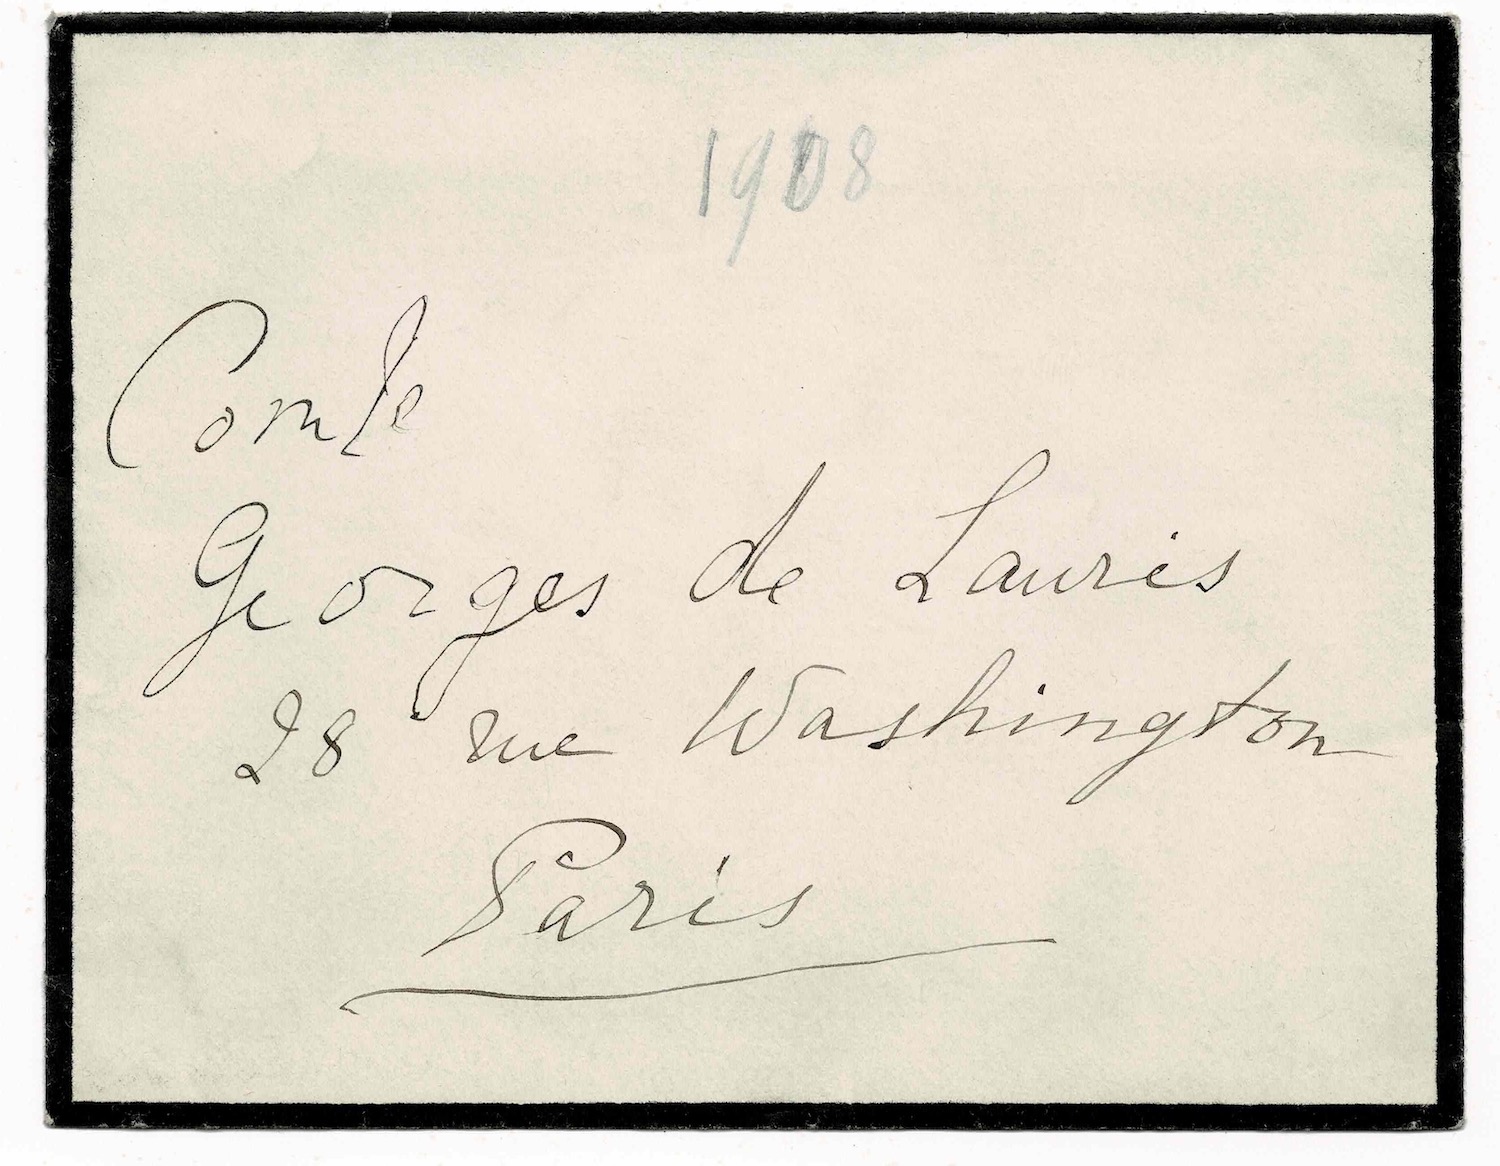 1908
Comte
Georges de Lauris
28 rue Washington
Paris